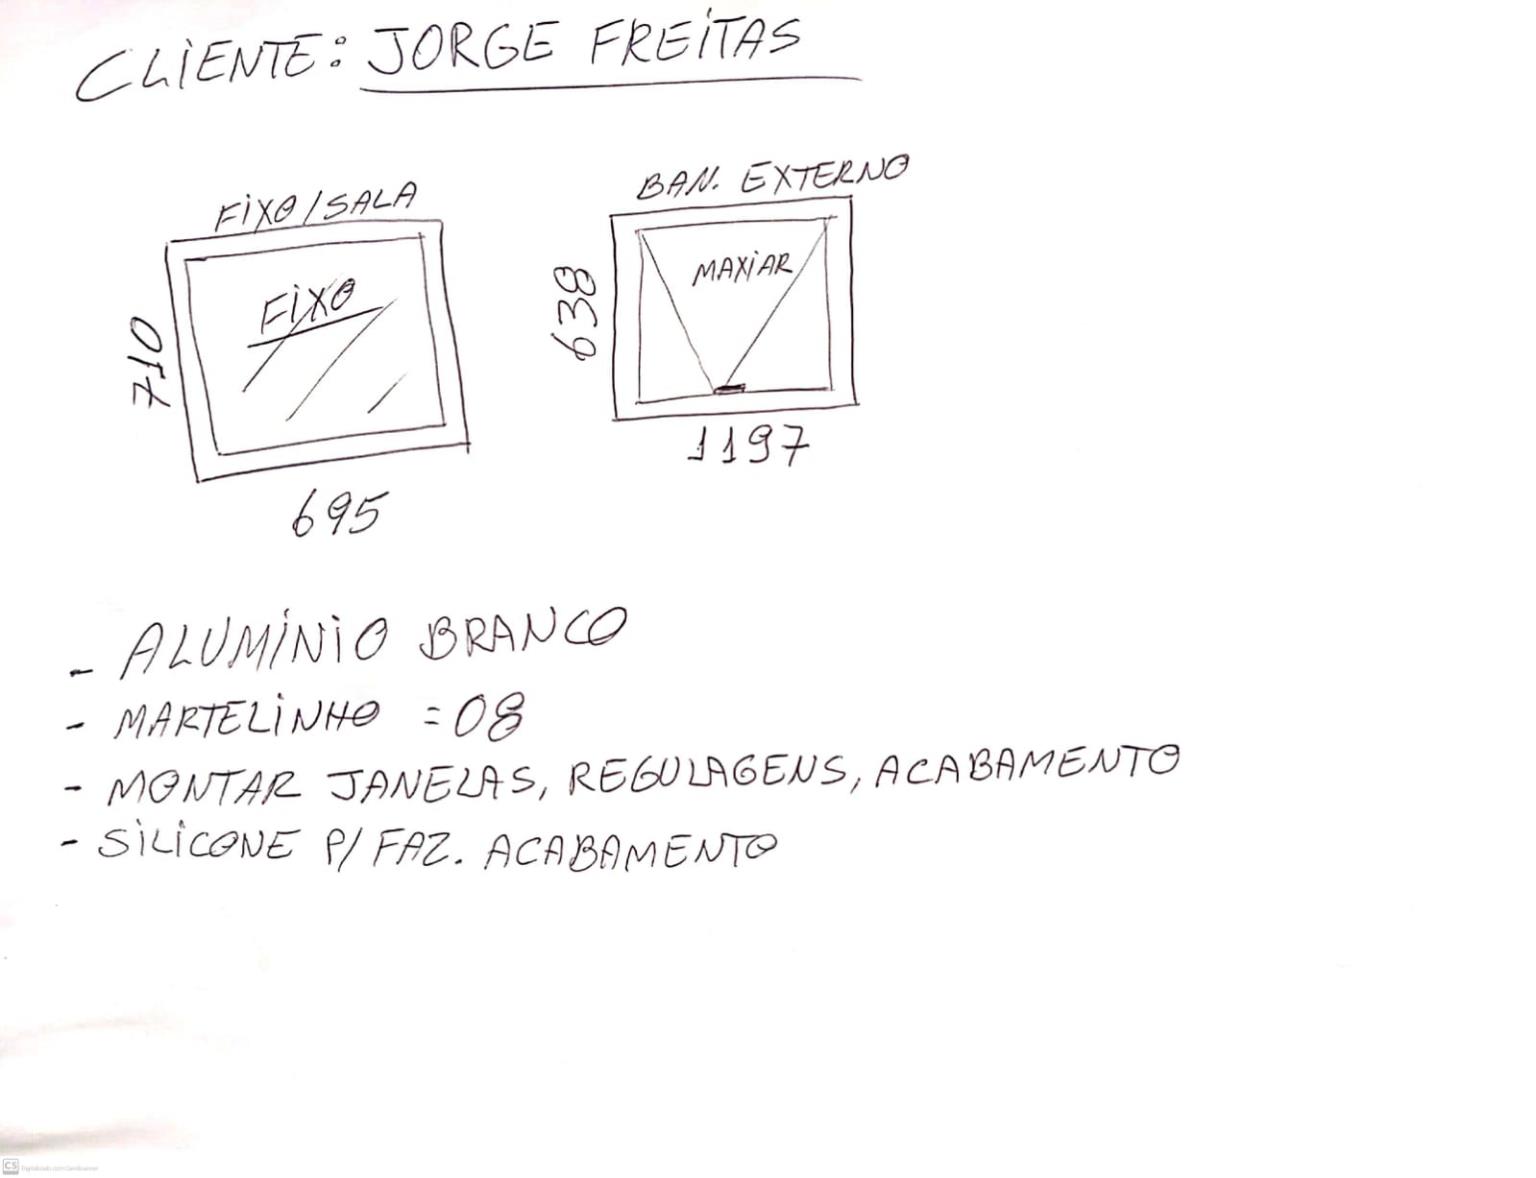 CLIENTE: JORGE FREITAS
FIXO/SALA
FIXO
710
695
BAN. EXTERNO
MAXIAR
638
1197
- ALUMÍNIO BRANCO
- MARTELINHO = 08
- MONTAR JANELAS, REGULAGENS, ACABAMENTO
- SILICONE P/ FAZ. ACABAMENTO
CS